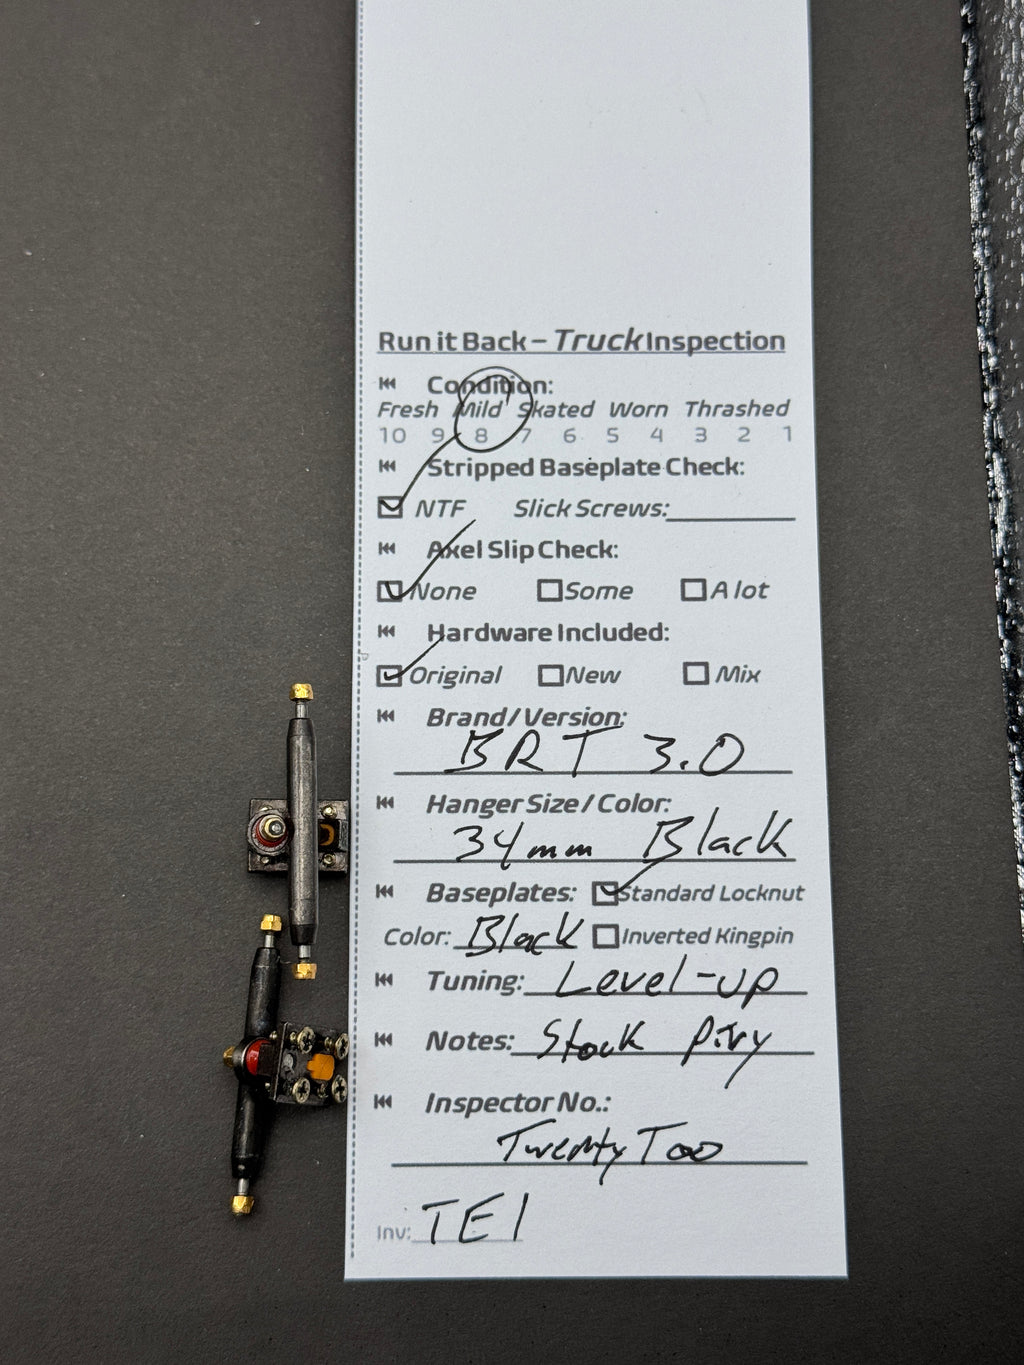 Run it Back – Truck Inspection
Condition:
Fresh Mild Skated Worn Thrashed
10 9 8 7 6 5 4 3 2 1
Stripped Baseplate Check:
NTF Slick Screws:
Axel Slip Check:
None Some A lot
Hardware Included:
Original New Mix
Brand/Version:
BRT 3.0
Hanger Size/Color:
34mm Black
Baseplates: Standard Locknut
Color: Black Inverted Kingpin
Tuning: Level-up
Notes: Stock
Inspector No.:
Twenty Too
Inv: TE1